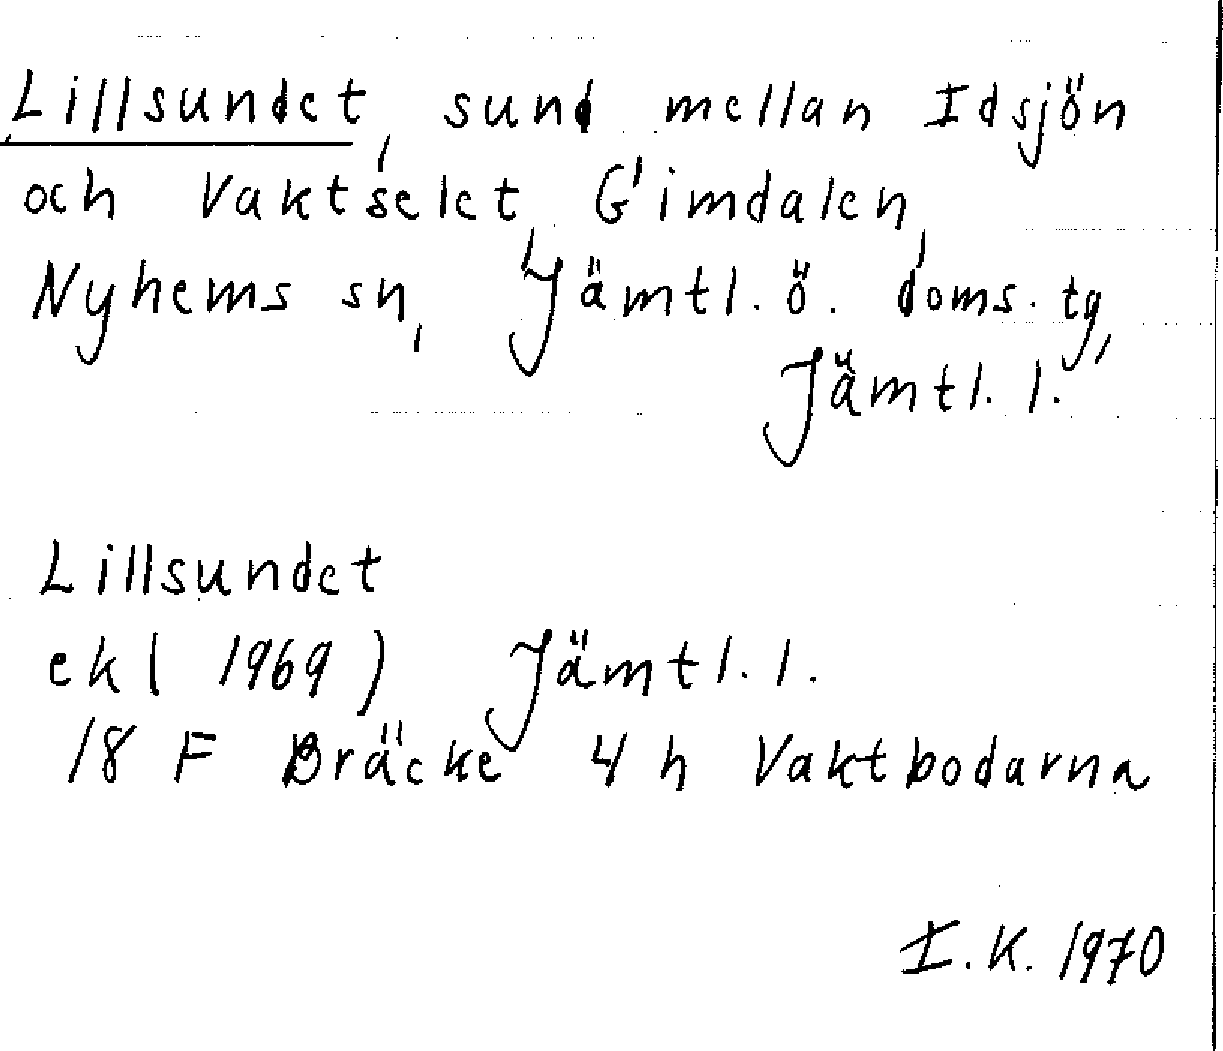 Lillsundet, sund mellan Idsjön
och Vaktselet, Gimdalen,
Nyhems sn, Jämtl. ö. doms. tg,
Jämtl. l.
Lillsundet
ek( 1969) Jämtl. l.
18 F Bräcke 4 h Vaktbodarna
I.K. 1970